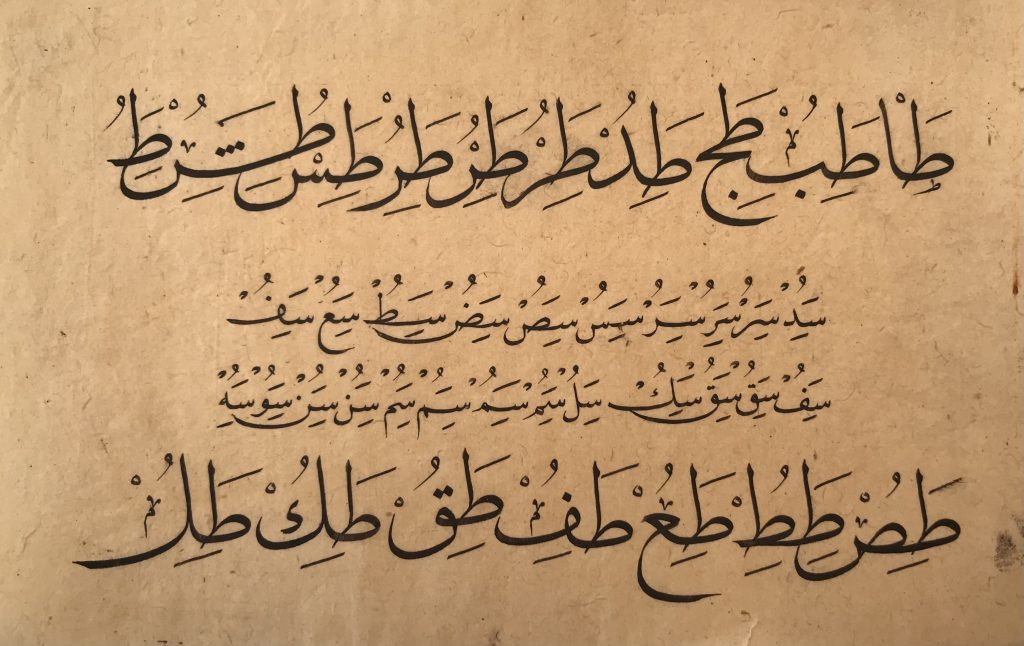 طا طب طج طد طر طر طر طس طش
سد سر سر سر سس سص سض سط سع سف
سف سق سق سك سل سم سم سم سم سن سن سو سه
طص طط طع طف طق طك طل